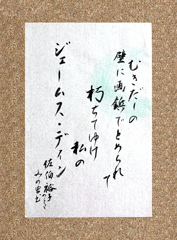 むきだしの
壁に画鋲でとめられ
て
朽ちてゆけ
私の
ジェームス・ディン
佐伯裕子